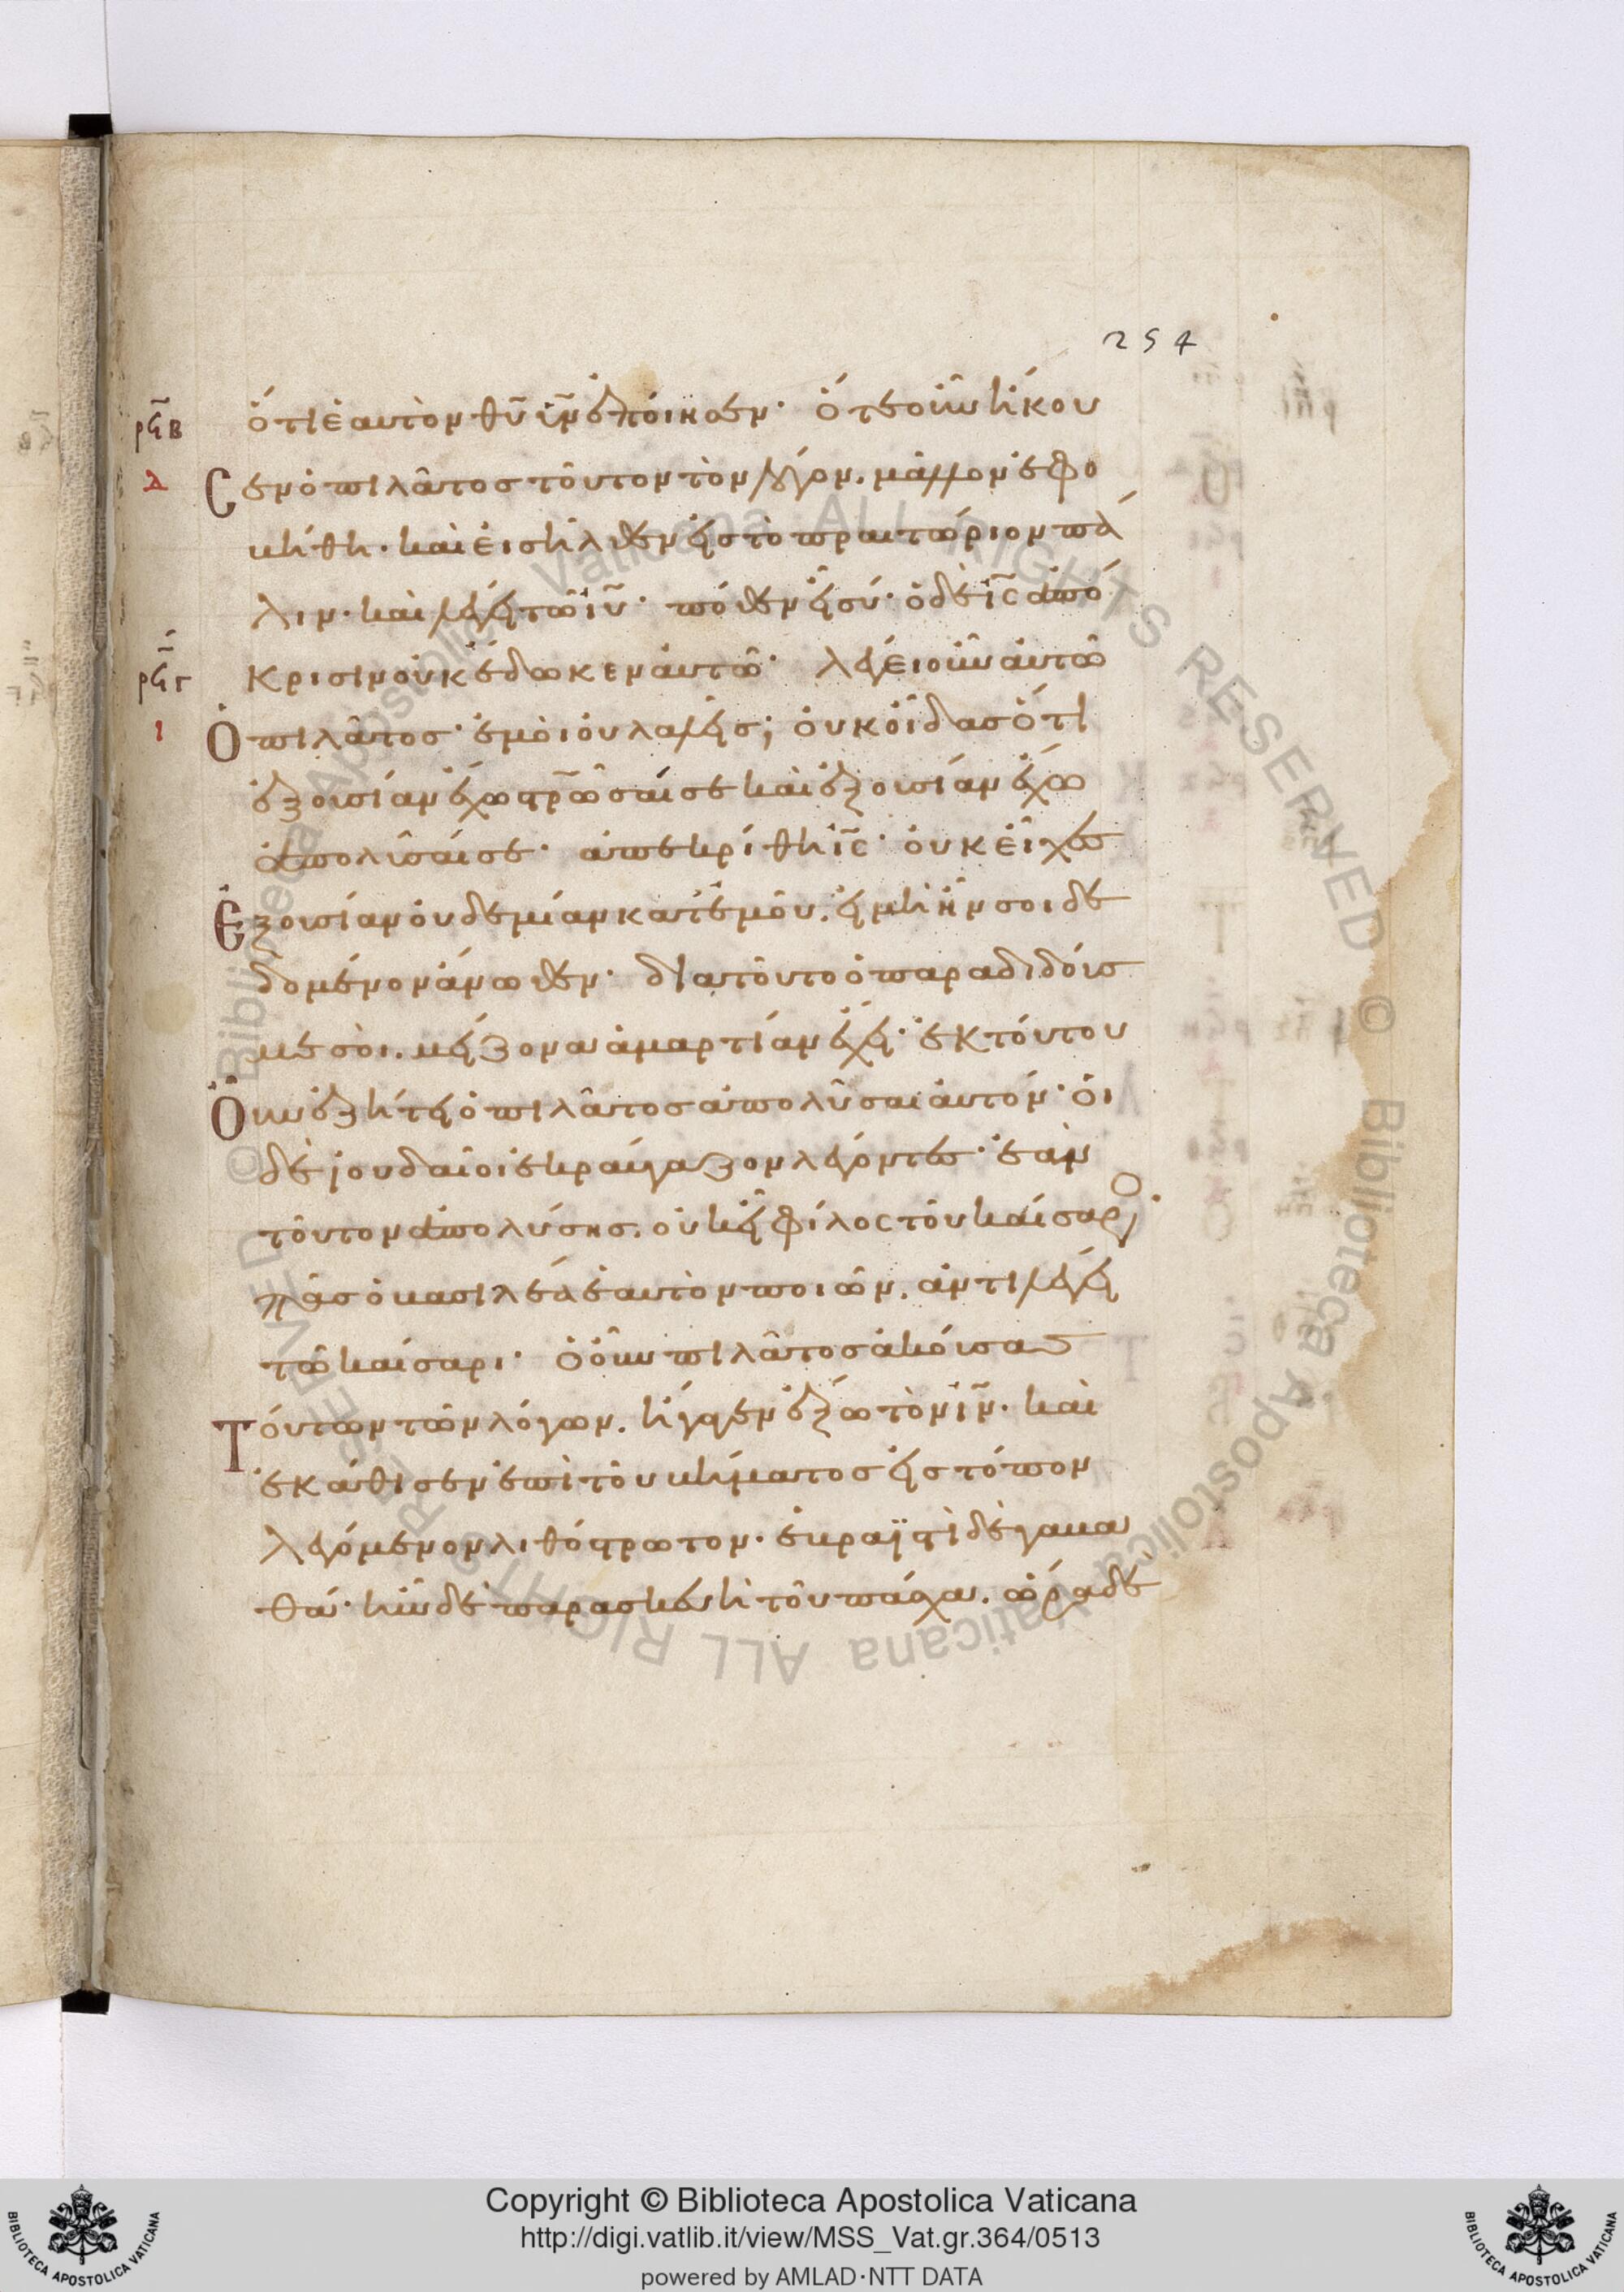 254
ρϟβ
δ
ὅτι ἑαυτὸν θῡ ῡν ἐποίησεν· ὅτε οὖν ἤκου
σεν ὁ πιλᾶτος τοῦτον τὸν λόγον. μᾶλλον ἐφο
βήθη· καὶ εἰσῆλθεν εἰς τὸ πραιτώριον πά
λιν· καὶ λέγει τῶ ῑῡ· πόθεν εἶ σύ· ὁ δὲ ῑς ἀπό
ρϟγ
ι
κρισιν οὐκ ἔδωκεν αὐτῶ· λέγει οὖν αὐτῶ
Ὁ πιλᾶτος· ἐμοὶ οὐ λαλεῖς; οὐκ οἶδας ὅτι
ἐξουσίαν ἔχω σ̅ρ̅ῶσαί σε καὶ ἐξουσίαν ἔχω
ἀπολῦσαί σε· ἀπεκρίθη ῑς· οὐκ εἶχες
Ἐξουσίαν οὐδεμίαν κατ' ἐμοῦ. εἰ μὴ ἦν σοι δε
δομένον ἄνωθεν· διατοῦτο ὁ παραδιδούς
με σοὶ. μείζονα ἁμαρτίαν ἔχει· ἐκ τούτου
Οὖν ἐζήτει ὁ πιλᾶτος ἀπολῦσαι αὐτόν· οἱ
δὲ ἰουδαῖοι ἐκραύγαζον λέγοντες· ἐὰν
τοῦτον ἀπολύσης. οὐκ εἶ φίλος τοῦ καίσαρο
πᾶς ὁ βασιλέα ἑαυτὸν ποιῶν. ἀντιλέγει
τῶ καίσαρι· ὁ οὖν πιλᾶτος ἀκούσας
Τούτων τῶν λόγων. ἤγαγεν ἔξω τὸν ῑν· καὶ
ἐκάθισεν ἐπὶ τοῦ βήματος εἰς τόπον
λεγόμενον λιθόστρωτον· ἑβραϊστὶ δὲ γαββα
θά· ἦν δὲ παρασκευὴ τοῦ πάσχα. ὥρα δὲ
Copyright © Biblioteca Apostolica Vaticana
http://digi.vatlib.it/view/MSS_Vat.gr.364/0513
powered by AMLAD·NTT DATA
BIBLIOTECA APOSTOLICA VATICANA
BIBLIOTECA APOSTOLICA VATICANA
© Biblioteca Apostolica Vaticana ALL RIGHTS RESERVED
© Biblioteca Apostolica Vaticana ALL RIGHTS RESERVED